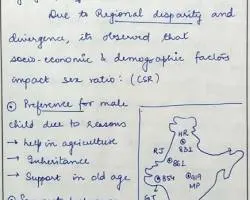 Due to Regional disparity and
divergence, its observed that
socio-economic & demographic factors
impact sex ratio: (CSR)
Preference for male
child due to reasons
→ help in agriculture
→ Inheritance
→ Support in old age
HR
832
RJ
861
854
919
MP
GJ